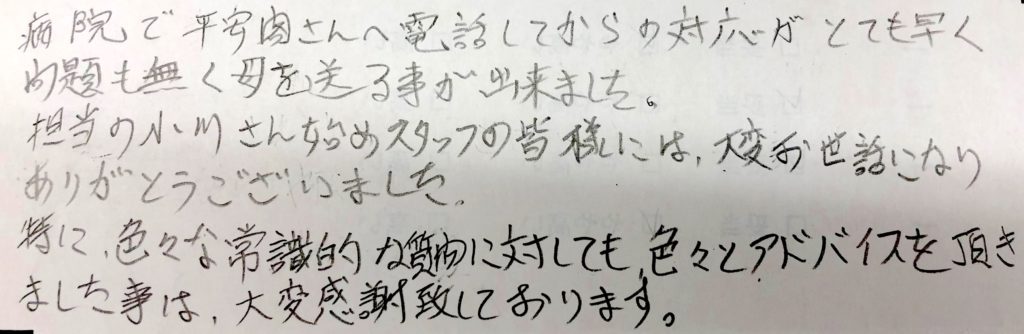 病院で平安閣さんへ電話してからの対応がとても早く
問題も無く母を送る事が出来ました。
担当の小川さん始めスタッフの皆様には、大変お世話になり
ありがとうございました。
特に、色々な常識的な質問に対しても、色々とアドバイスを頂き
ました事は、大変感謝致しております。